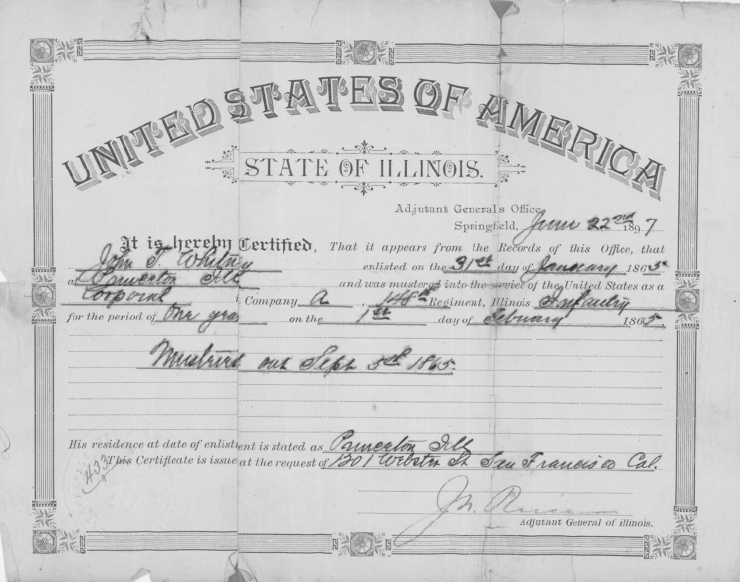 UNITED STATES OF AMERICA
STATE OF ILLINOIS.
Adjutant General's Office,
Springfield, June 22nd 1897
It is hereby Certified, That it appears from the Records of this Office, that
John T. Whitney enlisted on the 31st day of January 1865
at Princeton Ills and was mustered into the service of the United States as a
Corporal Company A, 148th Regiment, Illinois Infantry
for the period of One year on the 1st day of February 1865.
Mustered out Sept 5th 1865.
His residence at date of enlistment is stated as Princeton Ills
This Certificate is issue at the request of 1301 Webster St San Francisco Cal.
433
J. N.
Adjutant General of Illinois.